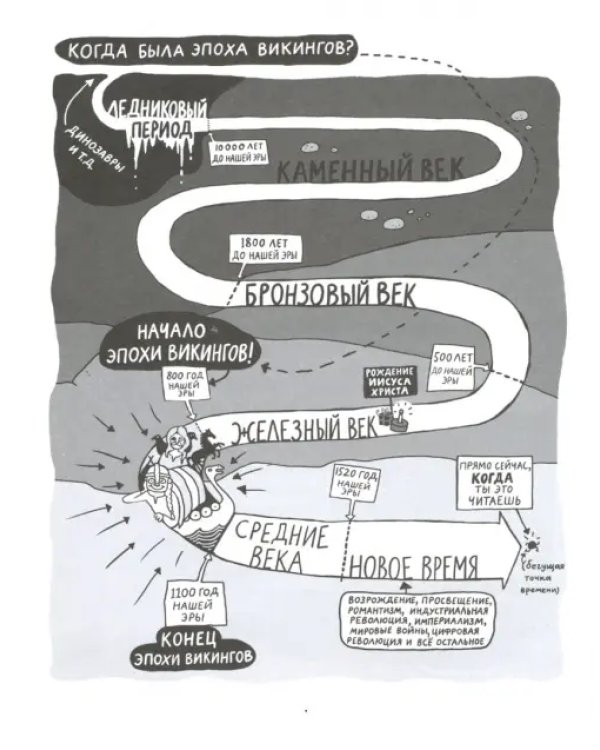 КОГДА БЫЛА ЭПОХА ВИКИНГОВ?
ЛЕДНИКОВЫЙ
ПЕРИОД
ДИНОЗАВРЫ
И Т.Д.
10000 ЛЕТ
ДО НАШЕЙ ЭРЫ
КАМЕННЫЙ ВЕК
1800 ЛЕТ
ДО НАШЕЙ ЭРЫ
БРОНЗОВЫЙ ВЕК
НАЧАЛО
ЭПОХИ ВИКИНГОВ!
500 ЛЕТ
ДО НАШЕЙ ЭРЫ
800 ГОД
НАШЕЙ
ЭРЫ
РОЖДЕНИЕ
ИИСУСА
ХРИСТА
ЖЕЛЕЗНЫЙ ВЕК
1520 ГОД
НАШЕЙ
ЭРЫ
ПРЯМО СЕЙЧАС,
КОГДА
ТЫ ЭТО
ЧИТАЕШЬ
СРЕДНИЕ
ВЕКА
НОВОЕ ВРЕМЯ
(бегущая
точка
времени)
1100 ГОД
НАШЕЙ
ЭРЫ
ВОЗРОЖДЕНИЕ, ПРОСВЕЩЕНИЕ,
РОМАНТИЗМ, ИНДУСТРИАЛЬНАЯ
РЕВОЛЮЦИЯ, ИМПЕРИАЛИЗМ,
МИРОВЫЕ ВОЙНЫ, ЦИФРОВАЯ
РЕВОЛЮЦИЯ И ВСЁ ОСТАЛЬНОЕ
КОНЕЦ
ЭПОХИ ВИКИНГОВ